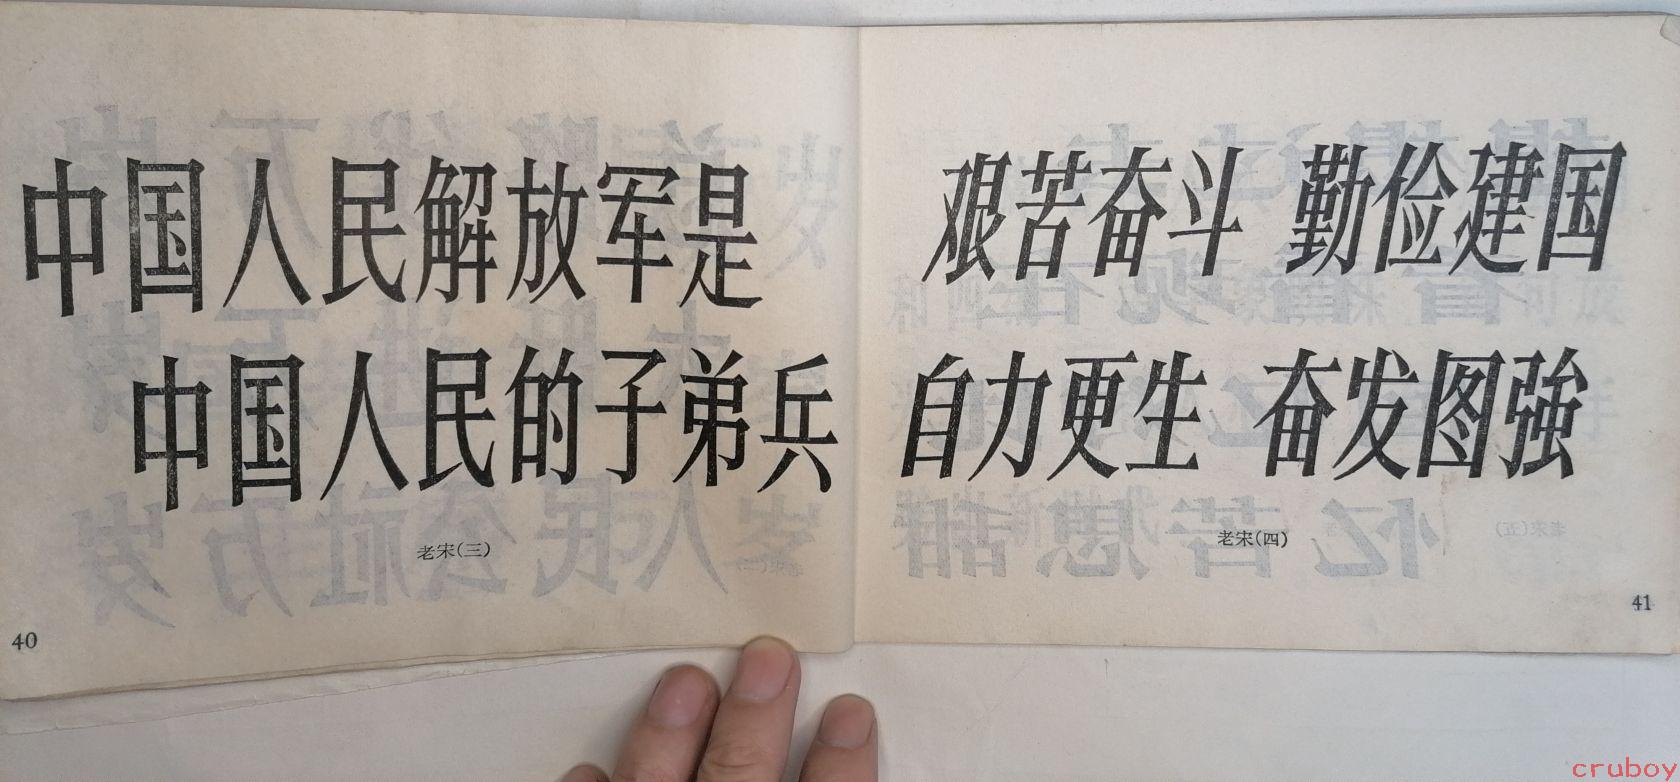 中国人民解放军是
中国人民的子弟兵
老宋(三)
40
艰苦奋斗 勤俭建国
自力更生 奋发图強
老宋(四)
41
cruboy